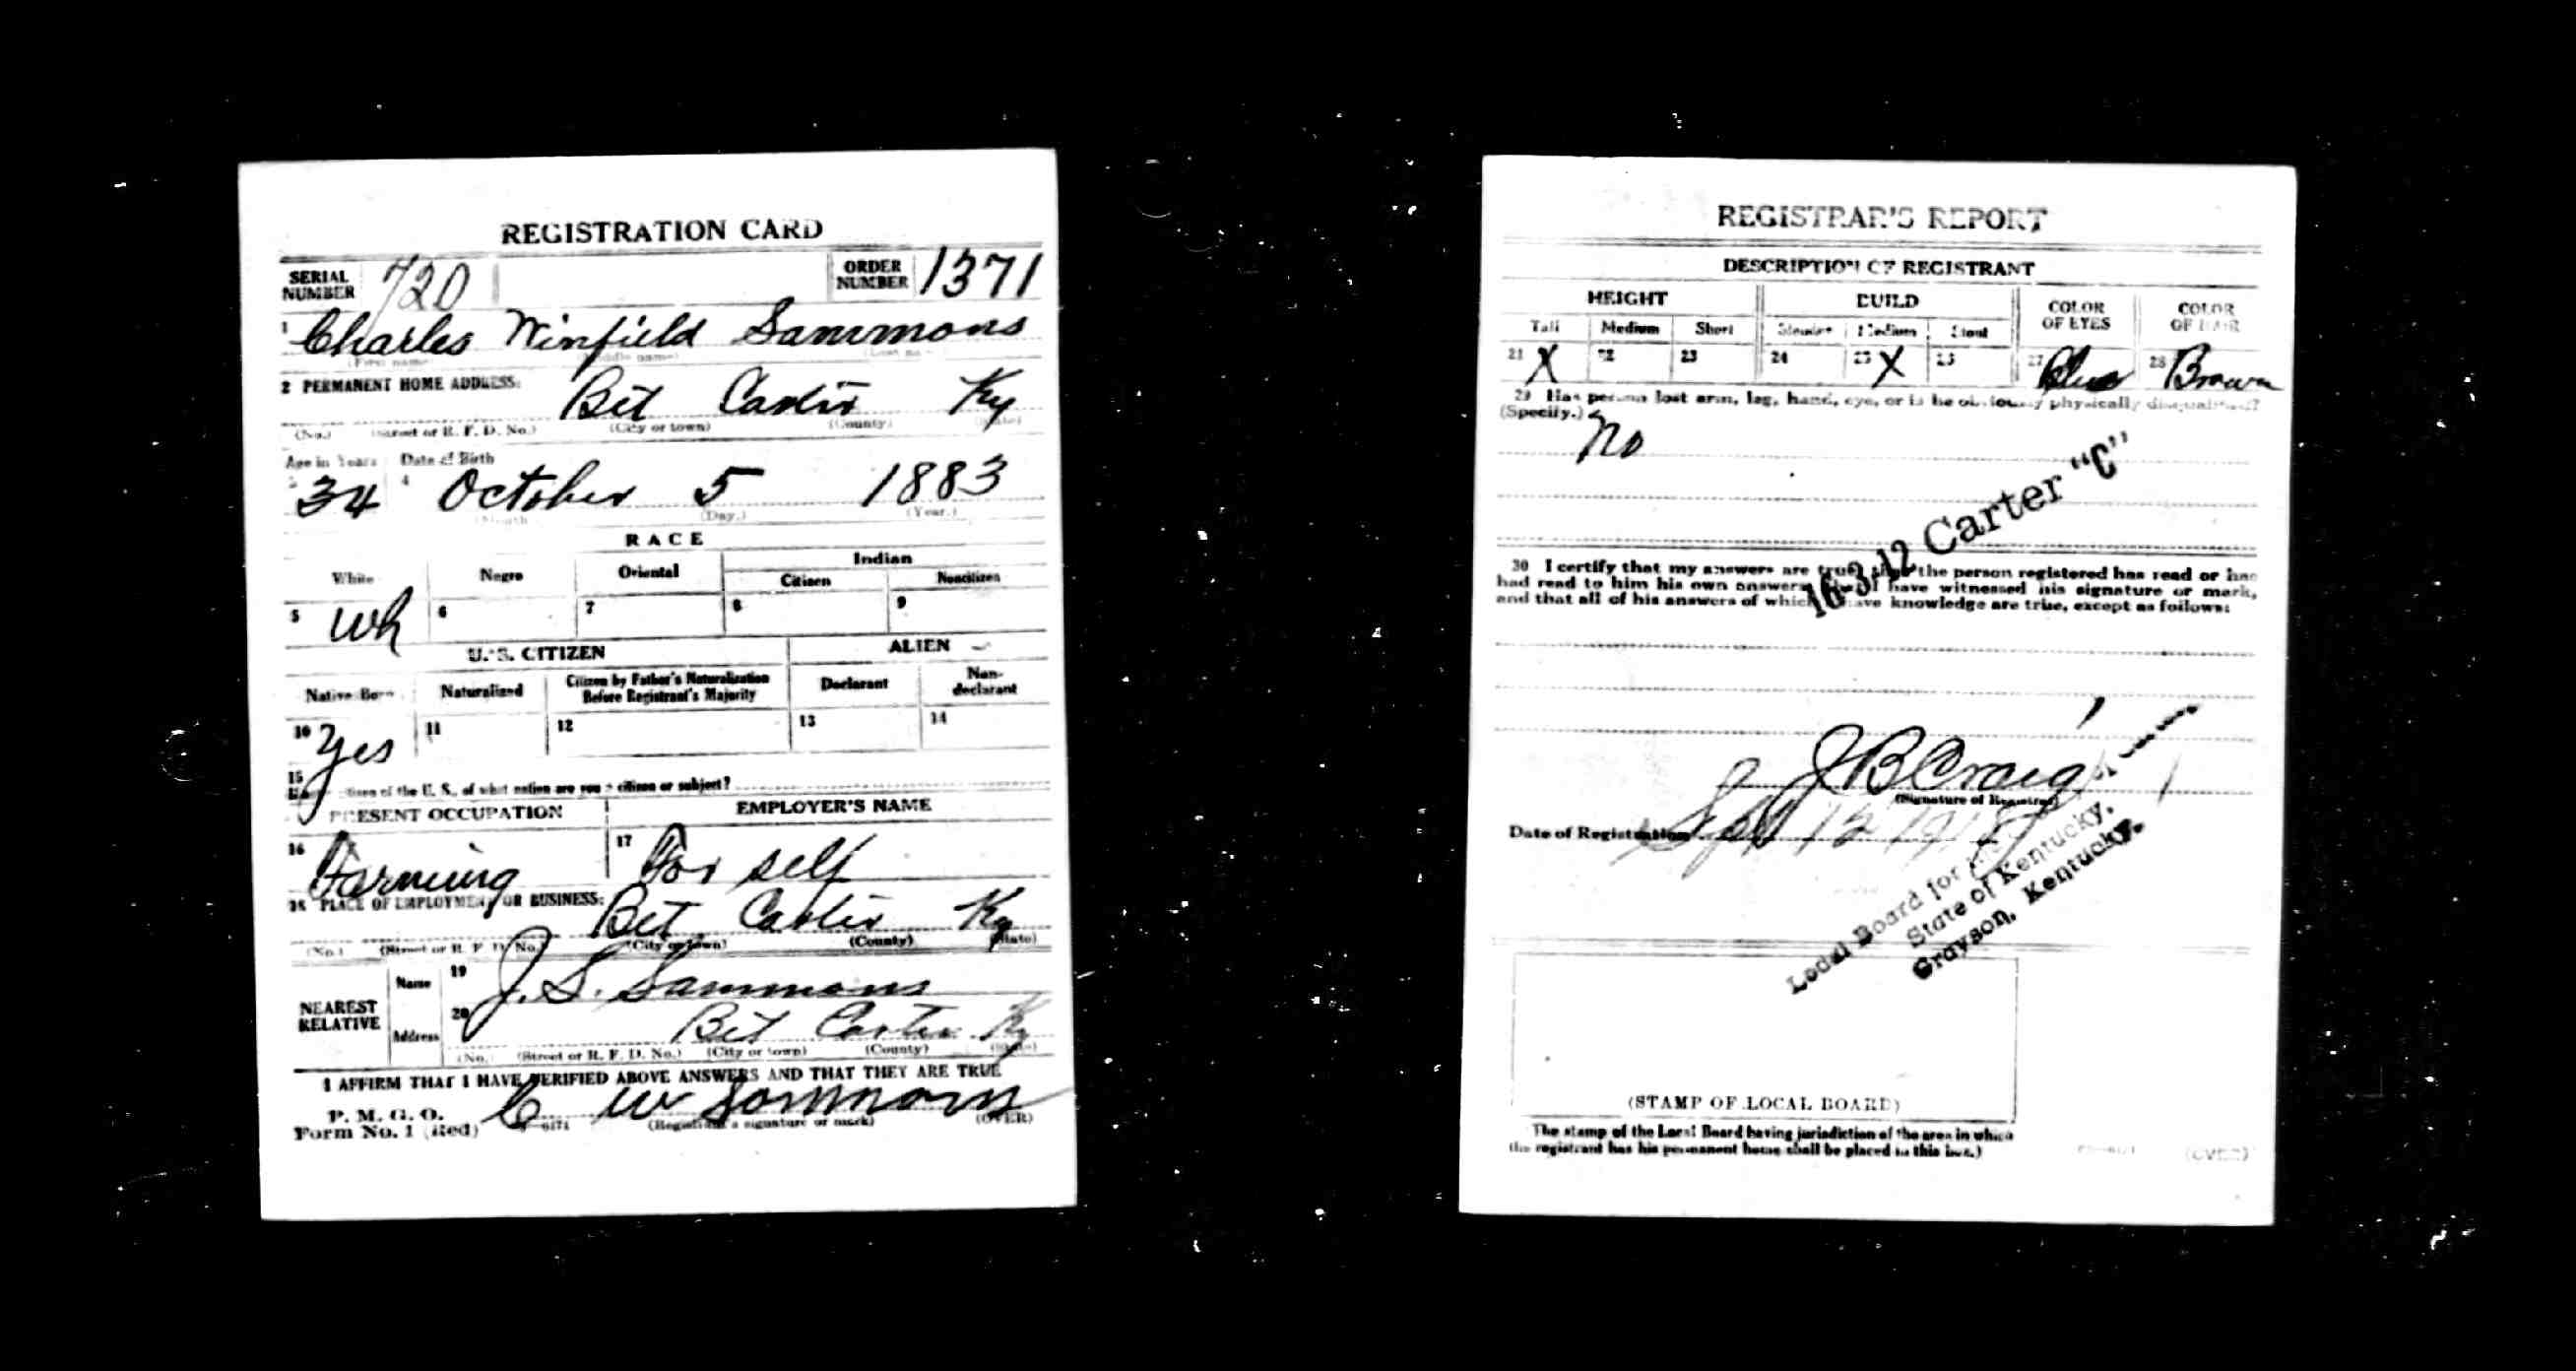 REGISTRATION CARD
SERIAL NUMBER 720 ORDER NUMBER 1371
1 Charles Winfield Sammons
(First name) (Middle name) (Last name)
2 PERMANENT HOME ADDRESS:
Bet Carter Ky
(No.) (Street or R. F. D. No.) (City or town) (County) (State)
Age in Years Date of Birth
3 34 4 October 5 1883
(Month) (Day.) (Year.)
RACE
White Negro Oriental Indian
Citizen Noncitizen
5 Wh 6 7 8 9
U. S. CITIZEN ALIEN
Native Born Naturalized Citizen by Father's Naturalization Before Registrant's Majority Declarant Non-declarant
10 Yes 11 12 13 14
15
citizen of the U. S., of what nation are you a citizen or subject?
PRESENT OCCUPATION EMPLOYER'S NAME
16 Farming 17 For self
18 PLACE OF EMPLOYMENT OR BUSINESS:
Bet Carter Ky
(No.) (Street or R. F. D. No.) (City or town) (County) (State)
NEAREST RELATIVE
Name 19 J. S. Sammons
Address 20 Bet Carter Ky
(No.) (Street or R. F. D. No.) (City or town) (County) (State)
I AFFIRM THAT I HAVE VERIFIED ABOVE ANSWERS AND THAT THEY ARE TRUE
P. M. G. O.
Form No. 1 (Red) C W Sammons
(Registrant's signature or mark) (OVER)
REGISTRAR'S REPORT
DESCRIPTION OF REGISTRANT
HEIGHT BUILD COLOR OF EYES COLOR OF HAIR
Tall Medium Short Slender Medium Stout
21 X 22 23 24 25 X 26 27 Blue 28 Brown
29 Has person lost arm, leg, hand, eye, or is he obviously physically disqualified?
(Specify.) No
16-3-12 Carter "C"
30 I certify that my answers are true, that the person registered has read or has
had read to him his own answers, that I have witnessed his signature or mark,
and that all of his answers of which I have knowledge are true, except as follows:
J B Craig
(Signature of Registrar)
Date of Registration Sept 12 1918
Local Board for the
State of Kentucky,
Grayson, Kentucky.
(STAMP OF LOCAL BOARD)
The stamp of the Local Board having jurisdiction of the area in which
the registrant has his permanent home shall be placed in this box.)
(OVER)